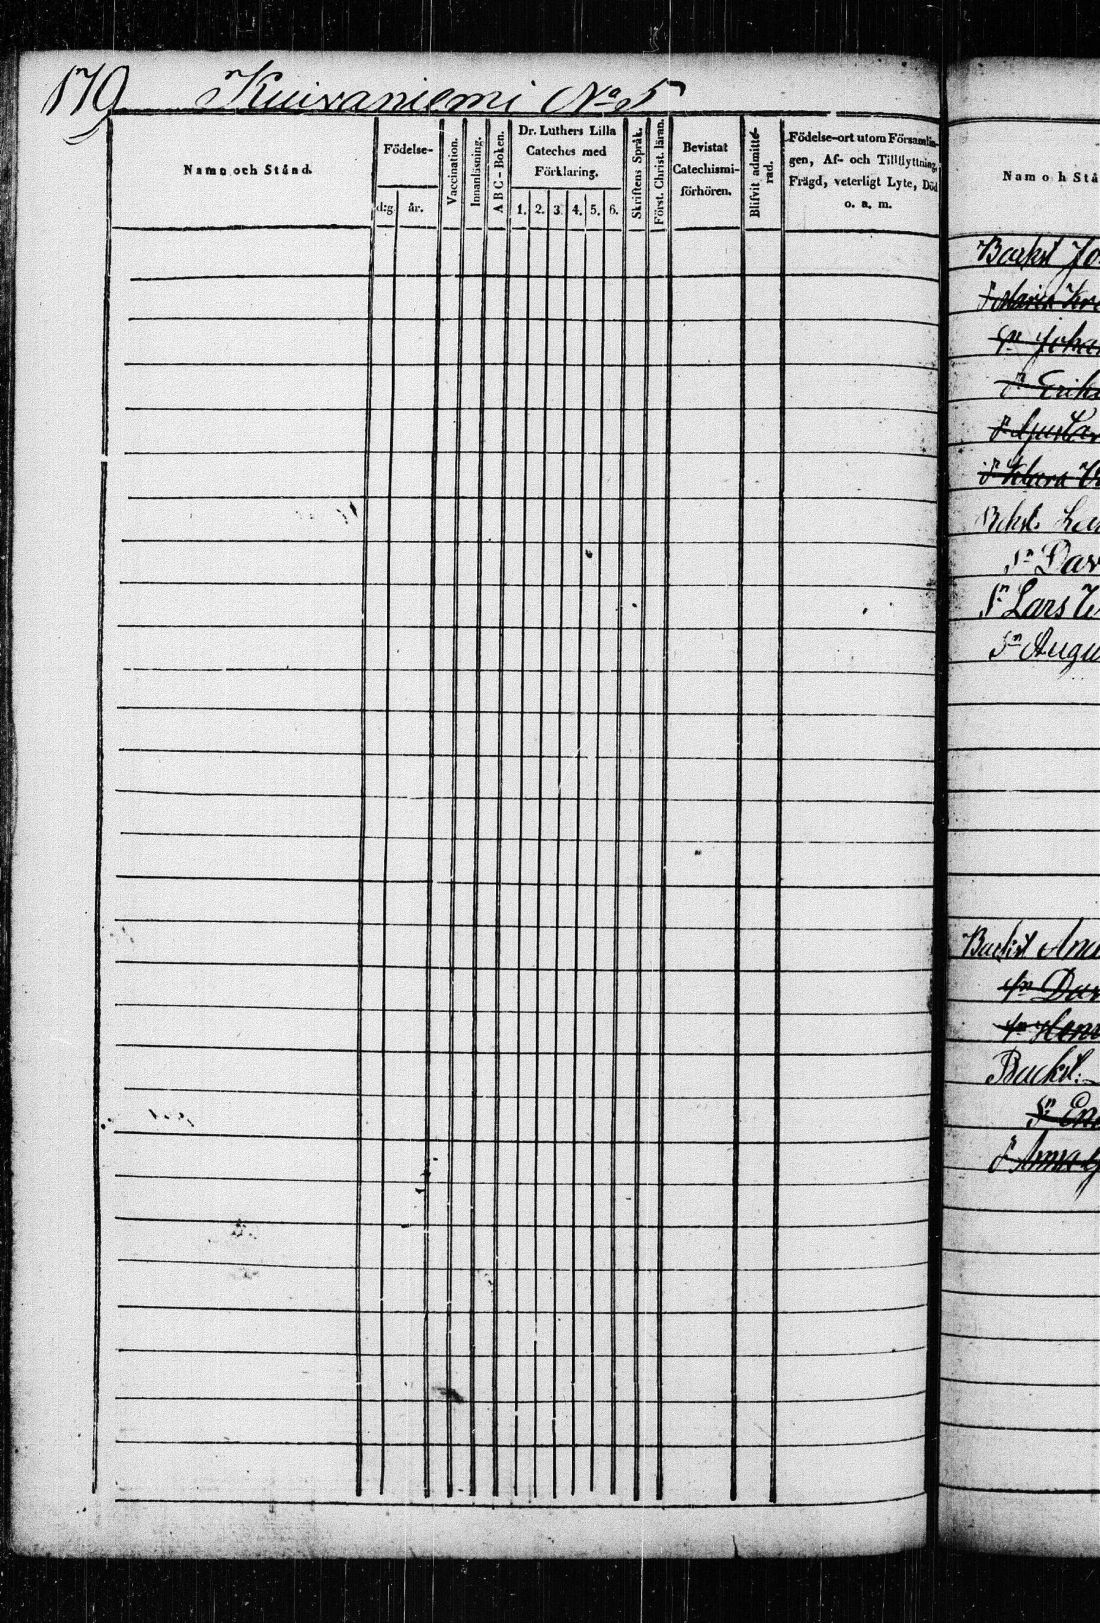 179 Kuivaniemi No 5
Namn och Stånd.
Födelse-
d:g år.
Vaccination.
Innanläsning.
A B C - Boken.
Dr. Luthers Lilla
Cateches med
Förklaring.
1. 2. 3. 4. 5. 6.
Skriftens Språk.
Först. Christ. läran.
Bevistat
Catechismi-
förhören.
Blifvit admitte-
rad.
Födelse-ort utom Församlin-
gen, Af- och Tillflyttning,
Frägd, veterligt Lyte, Död
o. a. m.
Nam o h Stå
Backst Jo
Maria
Johan
Erik
Gustav
Klara
Dav
Lars
Augu
Backst
Backst.
Anna